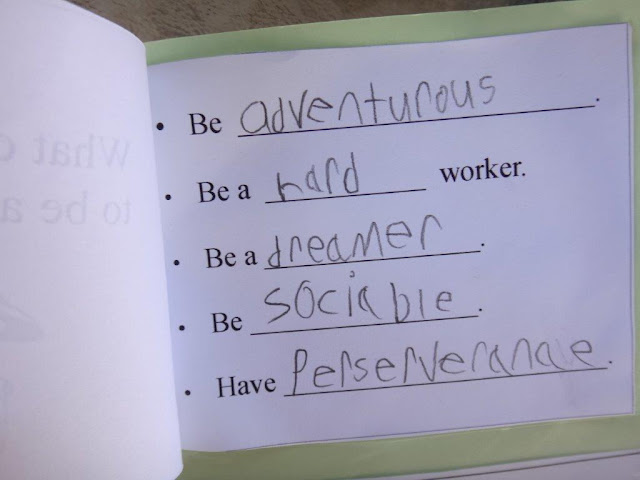 • Be adventurous.
• Be a hard worker.
• Be a dreamer.
• Be sociable.
• Have Perserverance.
What
to be a